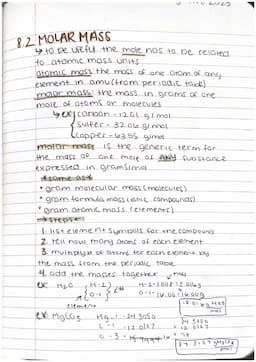 8.2 MOLAR MASS
↳ to be useful the mole has to be related
to atomic mass units
atomic mass: the mass of one atom of any
element in amu (from periodic table)
molar mass: the mass in grams of one
mole of atoms or molecules
↳ ex: carbon - 12.01 g/mol
sulfer - 32.06 g/mol
copper - 63.55 g/mol
molar mass is the generic term for
the mass of one mole of any substance
expressed in grams/mol
*same as*
• gram molecular mass (molecules)
• gram formula mass (ionic compounds)
• gram atomic mass (elements)
↳ steps
1. list element symbols for the compound
2. tell how many atoms of each element
3. multiply # of atoms for each element by
the mass from the periodic table
4. add the masses together
ex: H₂O H-2
O-1
element
ex: MgCO₃ Mg-1
C-1
O-3